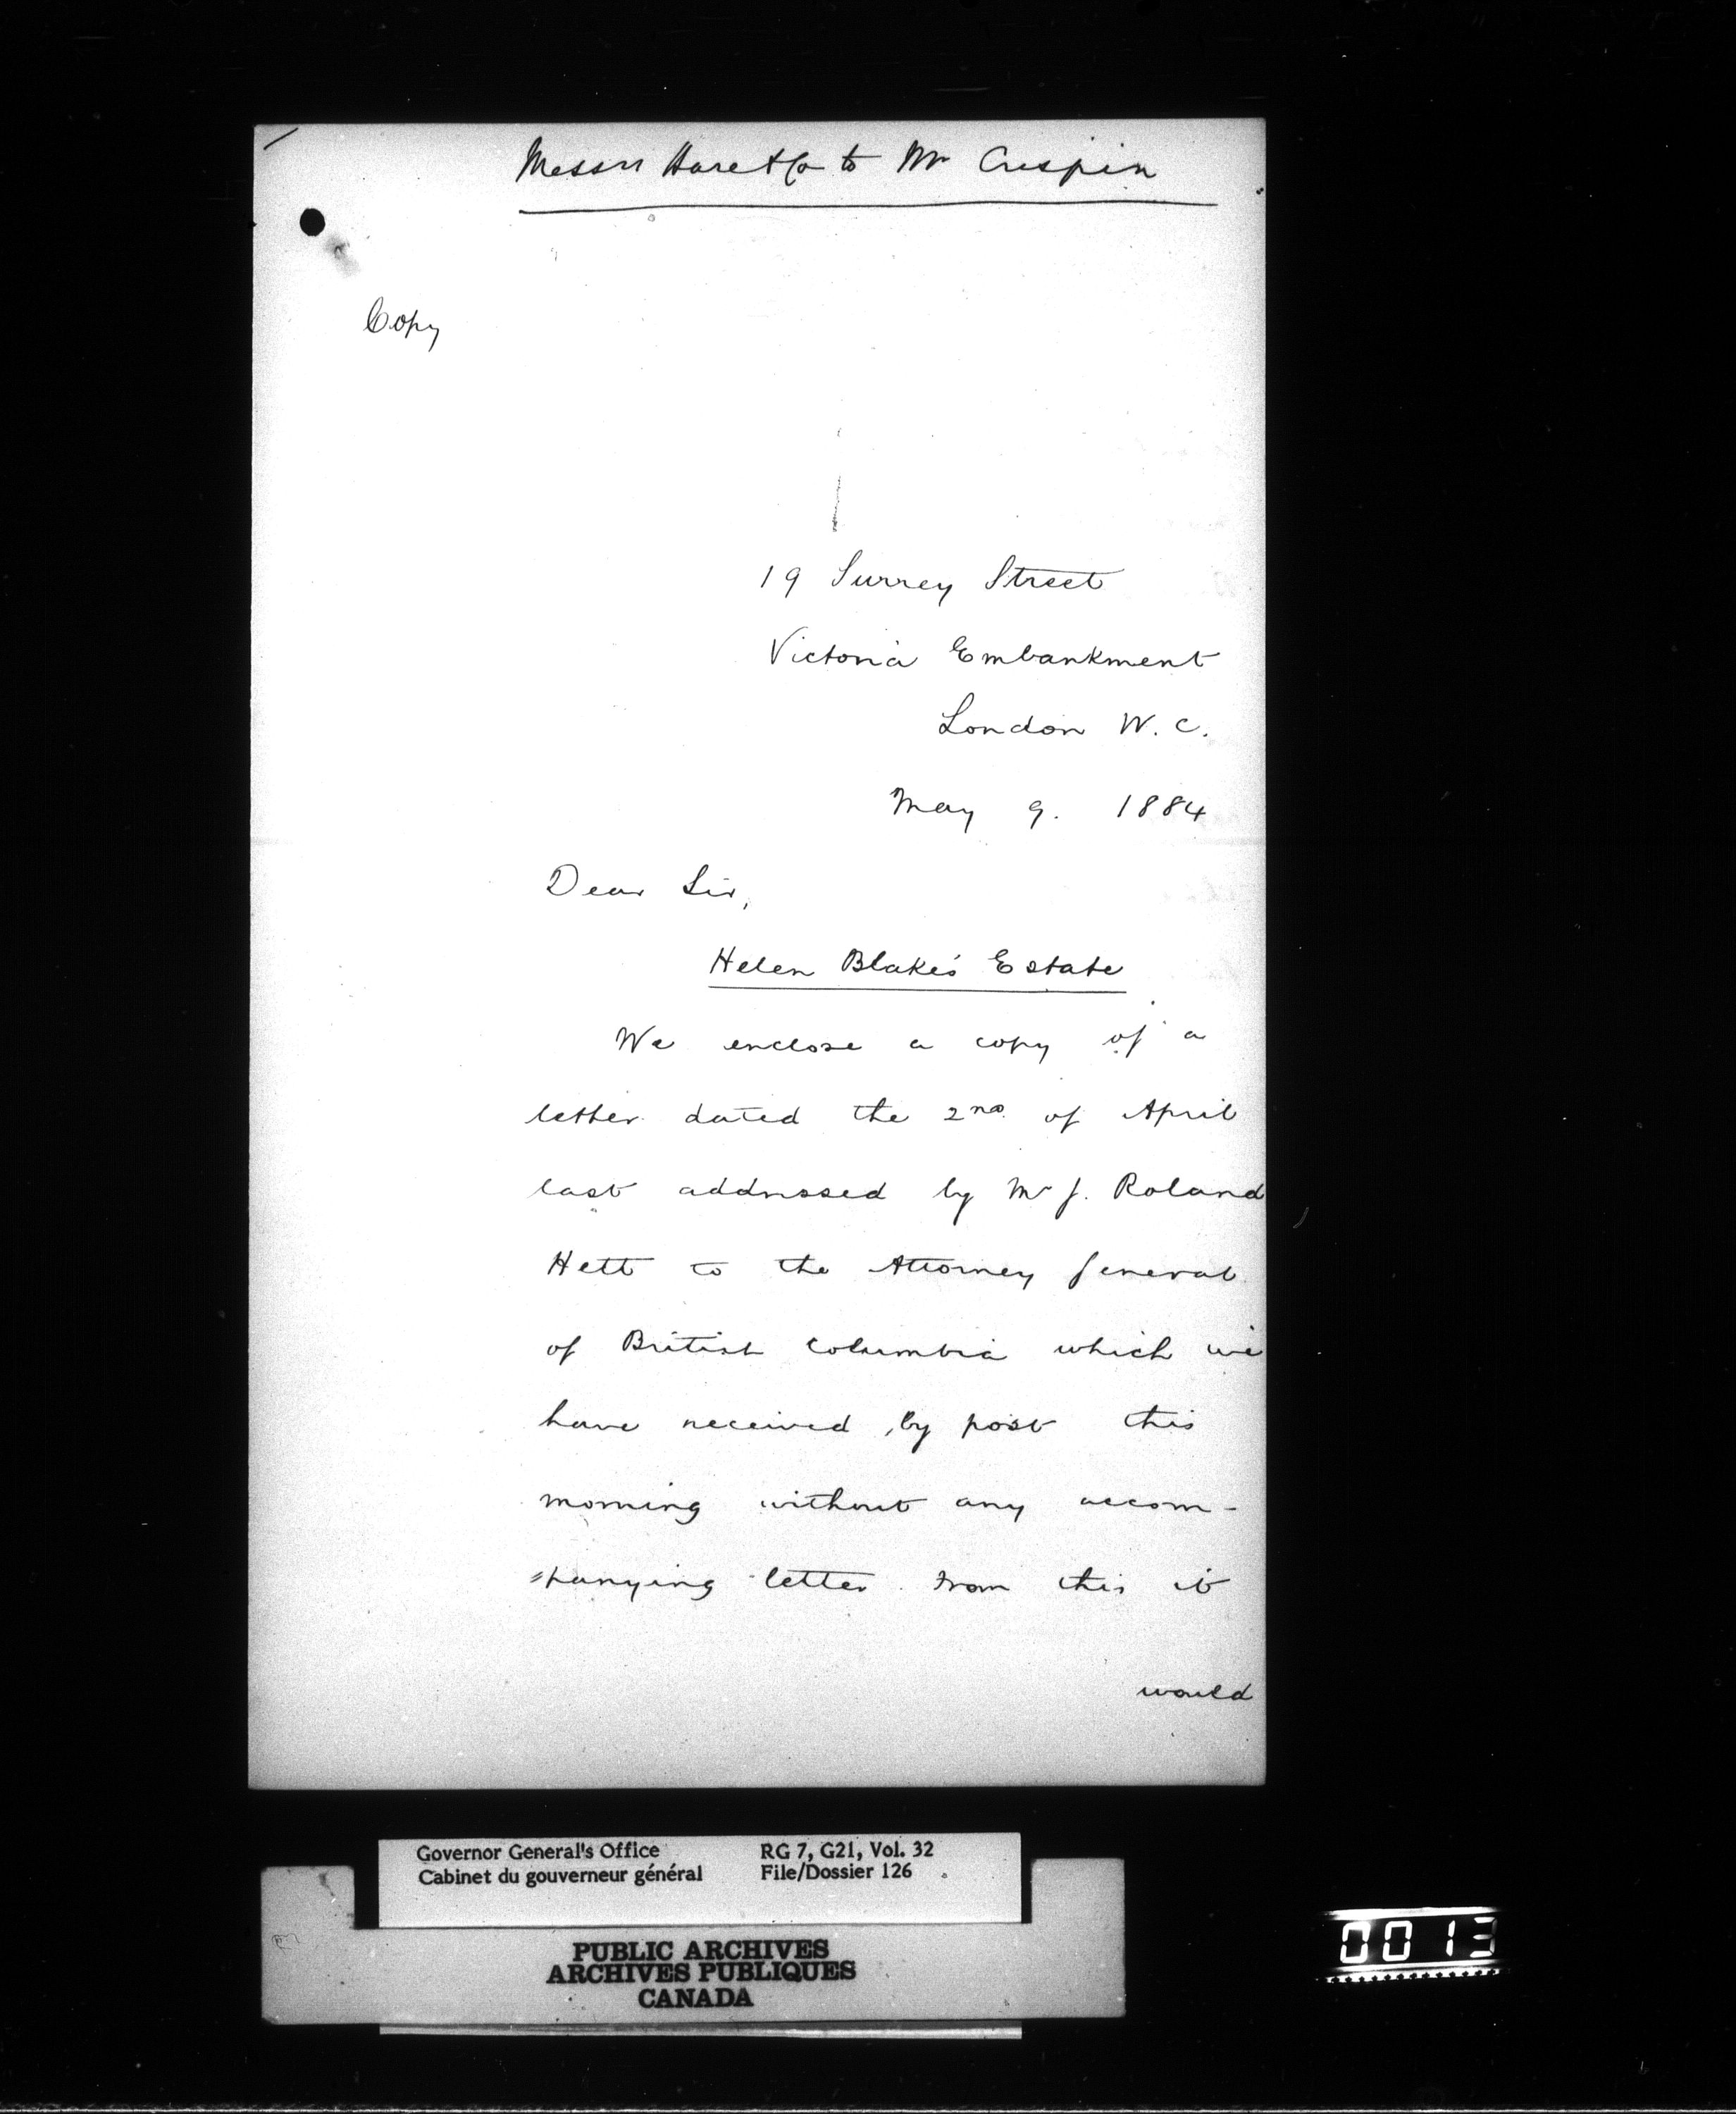 Messrs Hare & Co to Mr Crispin
Copy
19 Surrey Street
Victoria Embankment
London W. C.
May 9. 1884
Dear Sir,
Helen Blake's Estate
We enclose a copy of a
letter dated the 2nd. of April
last addressed by Mr J. Roland
Hett to the Attorney General
of British Columbia which we
have received by post this
morning without any accom-
=panying letter. From this it
would
Governor General's Office RG 7, G21, Vol. 32
Cabinet du gouverneur général File/Dossier 126
PUBLIC ARCHIVES
ARCHIVES PUBLIQUES
CANADA
0013